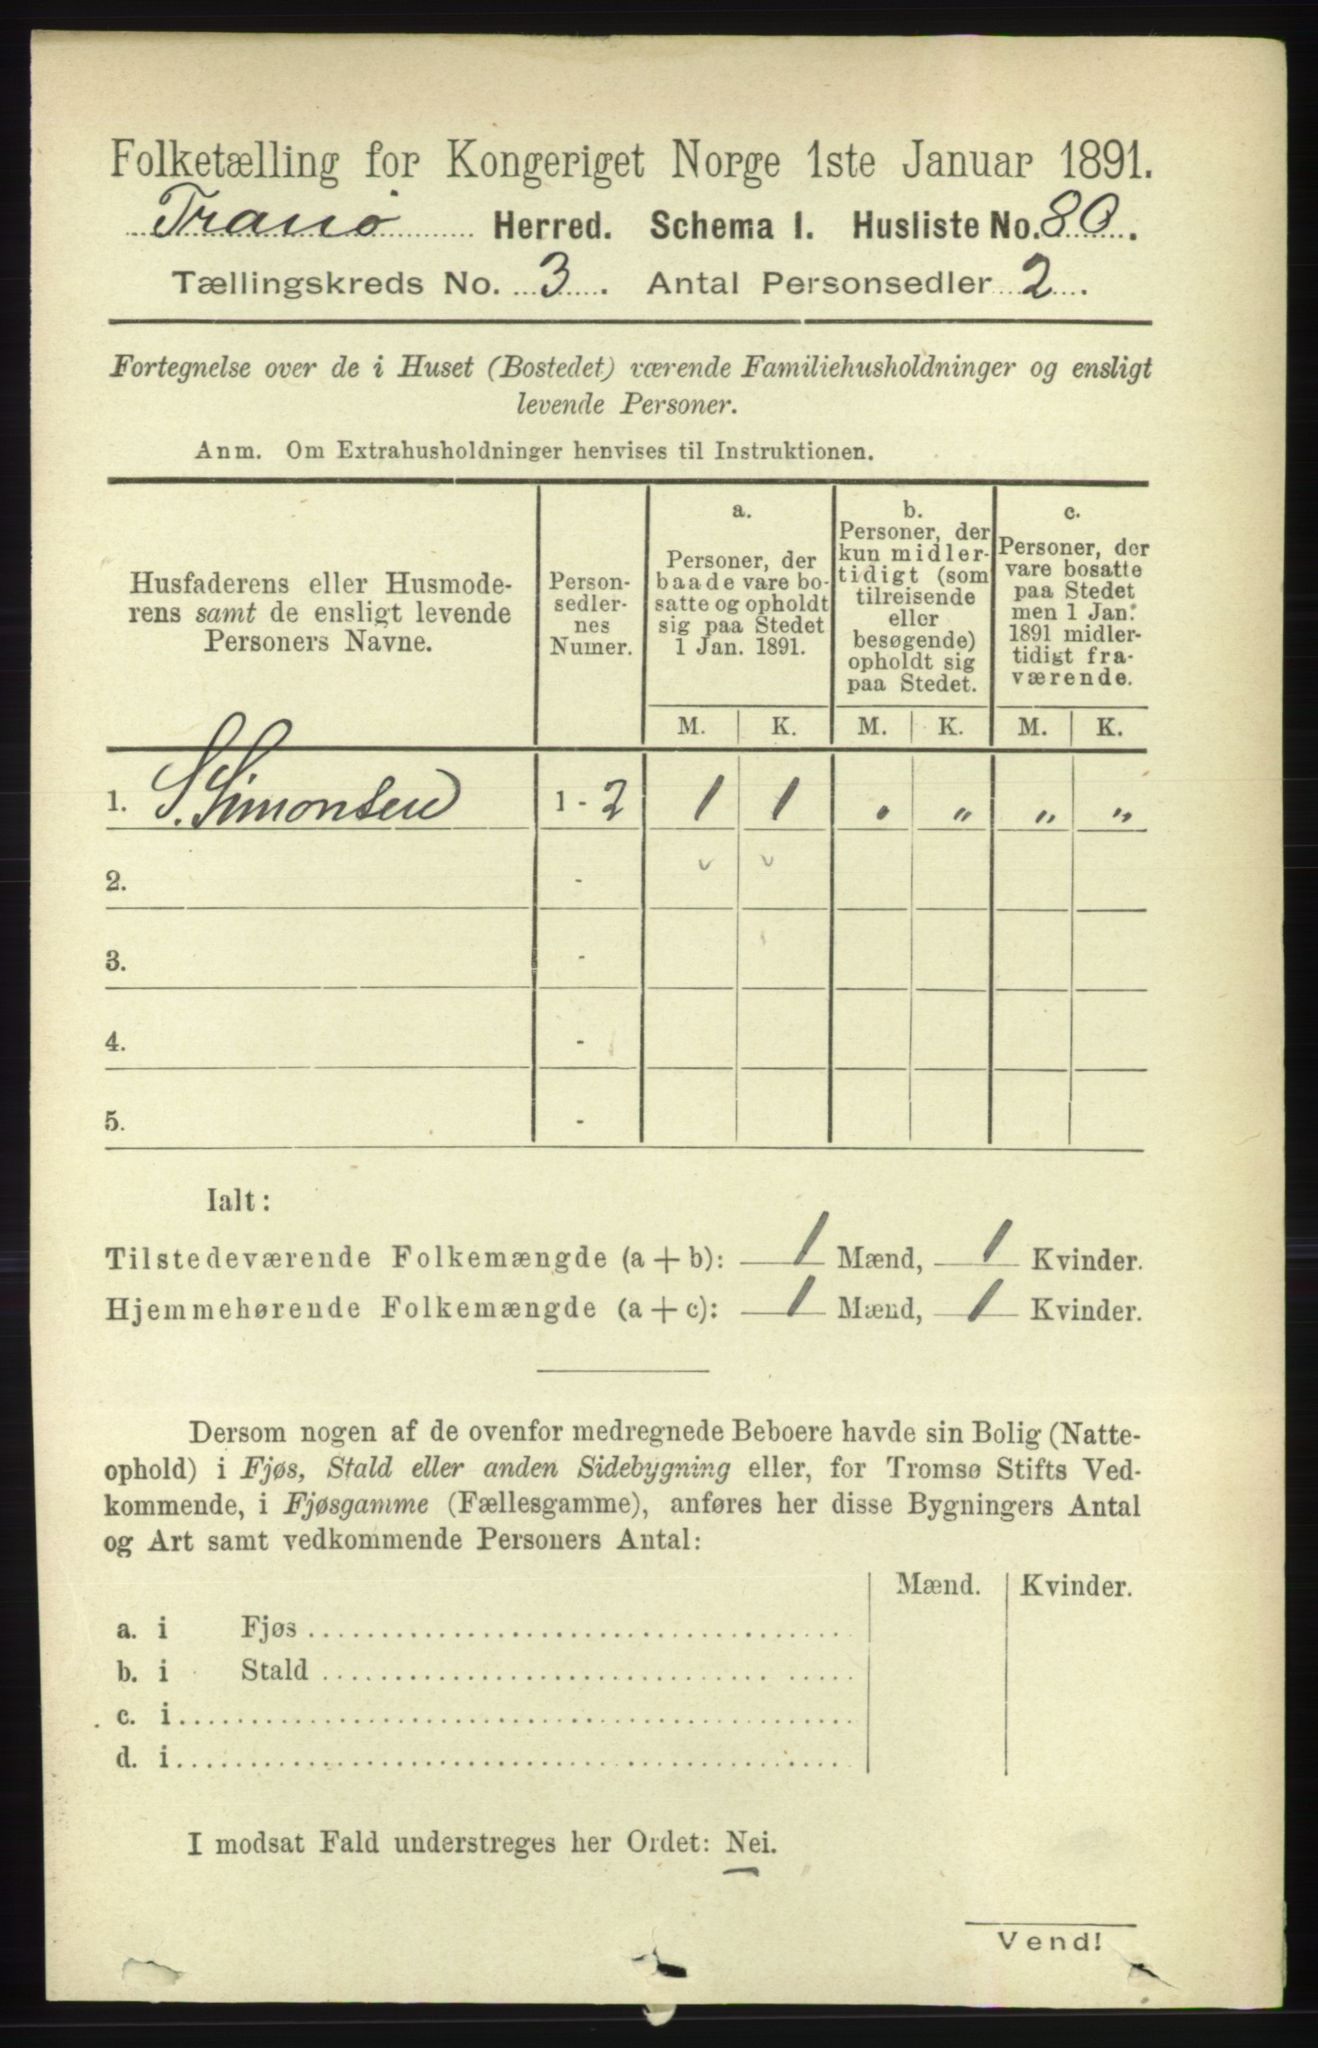 Folketælling for Kongeriget Norge 1ste Januar 1891.
Tranø Herred. Schema I. Husliste No. 80.
Tællingskreds No. 3. Antal Personsedler 2.
Fortegnelse over de i Huset (Bostedet) værende Familiehusholdninger og ensligt
levende Personer.
Anm. Om Extrahusholdninger henvises til Instruktionen.
Husfaderens eller Husmode-
rens samt de ensligt levende
Personers Navne.
Person-
sedler-
nes
Numer.
a.
Personer, der
baade vare bo-
satte og opholdt
sig paa Stedet
1 Jan. 1891.
b.
Personer, der
kun midler-
tidigt (som
tilreisende
eller
besøgende)
opholdt sig
paa Stedet.
c.
Personer, der
vare bosatte
paa Stedet
men 1 Jan.
1891 midler-
tidigt fra-
værende.
M. K. M. K. M. K.
1. S. Simonsen 1 - 2 1 1 . „ „ „
2. -
3. -
4. -
5. -
Ialt:
Tilstedeværende Folkemængde (a + b): 1 Mænd, 1 Kvinder.
Hjemmehørende Folkemængde (a + c): 1 Mænd, 1 Kvinder.
Dersom nogen af de ovenfor medregnede Beboere havde sin Bolig (Natte-
ophold) i Fjøs, Stald eller anden Sidebygning eller, for Tromsø Stifts Ved-
kommende, i Fjøsgamme (Fællesgamme), anføres her disse Bygningers Antal
og Art samt vedkommende Personers Antal:
Mænd. Kvinder.
a. i Fjøs
b. i Stald
c. i
d. i
I modsat Fald understreges her Ordet: Nei.
Vend!